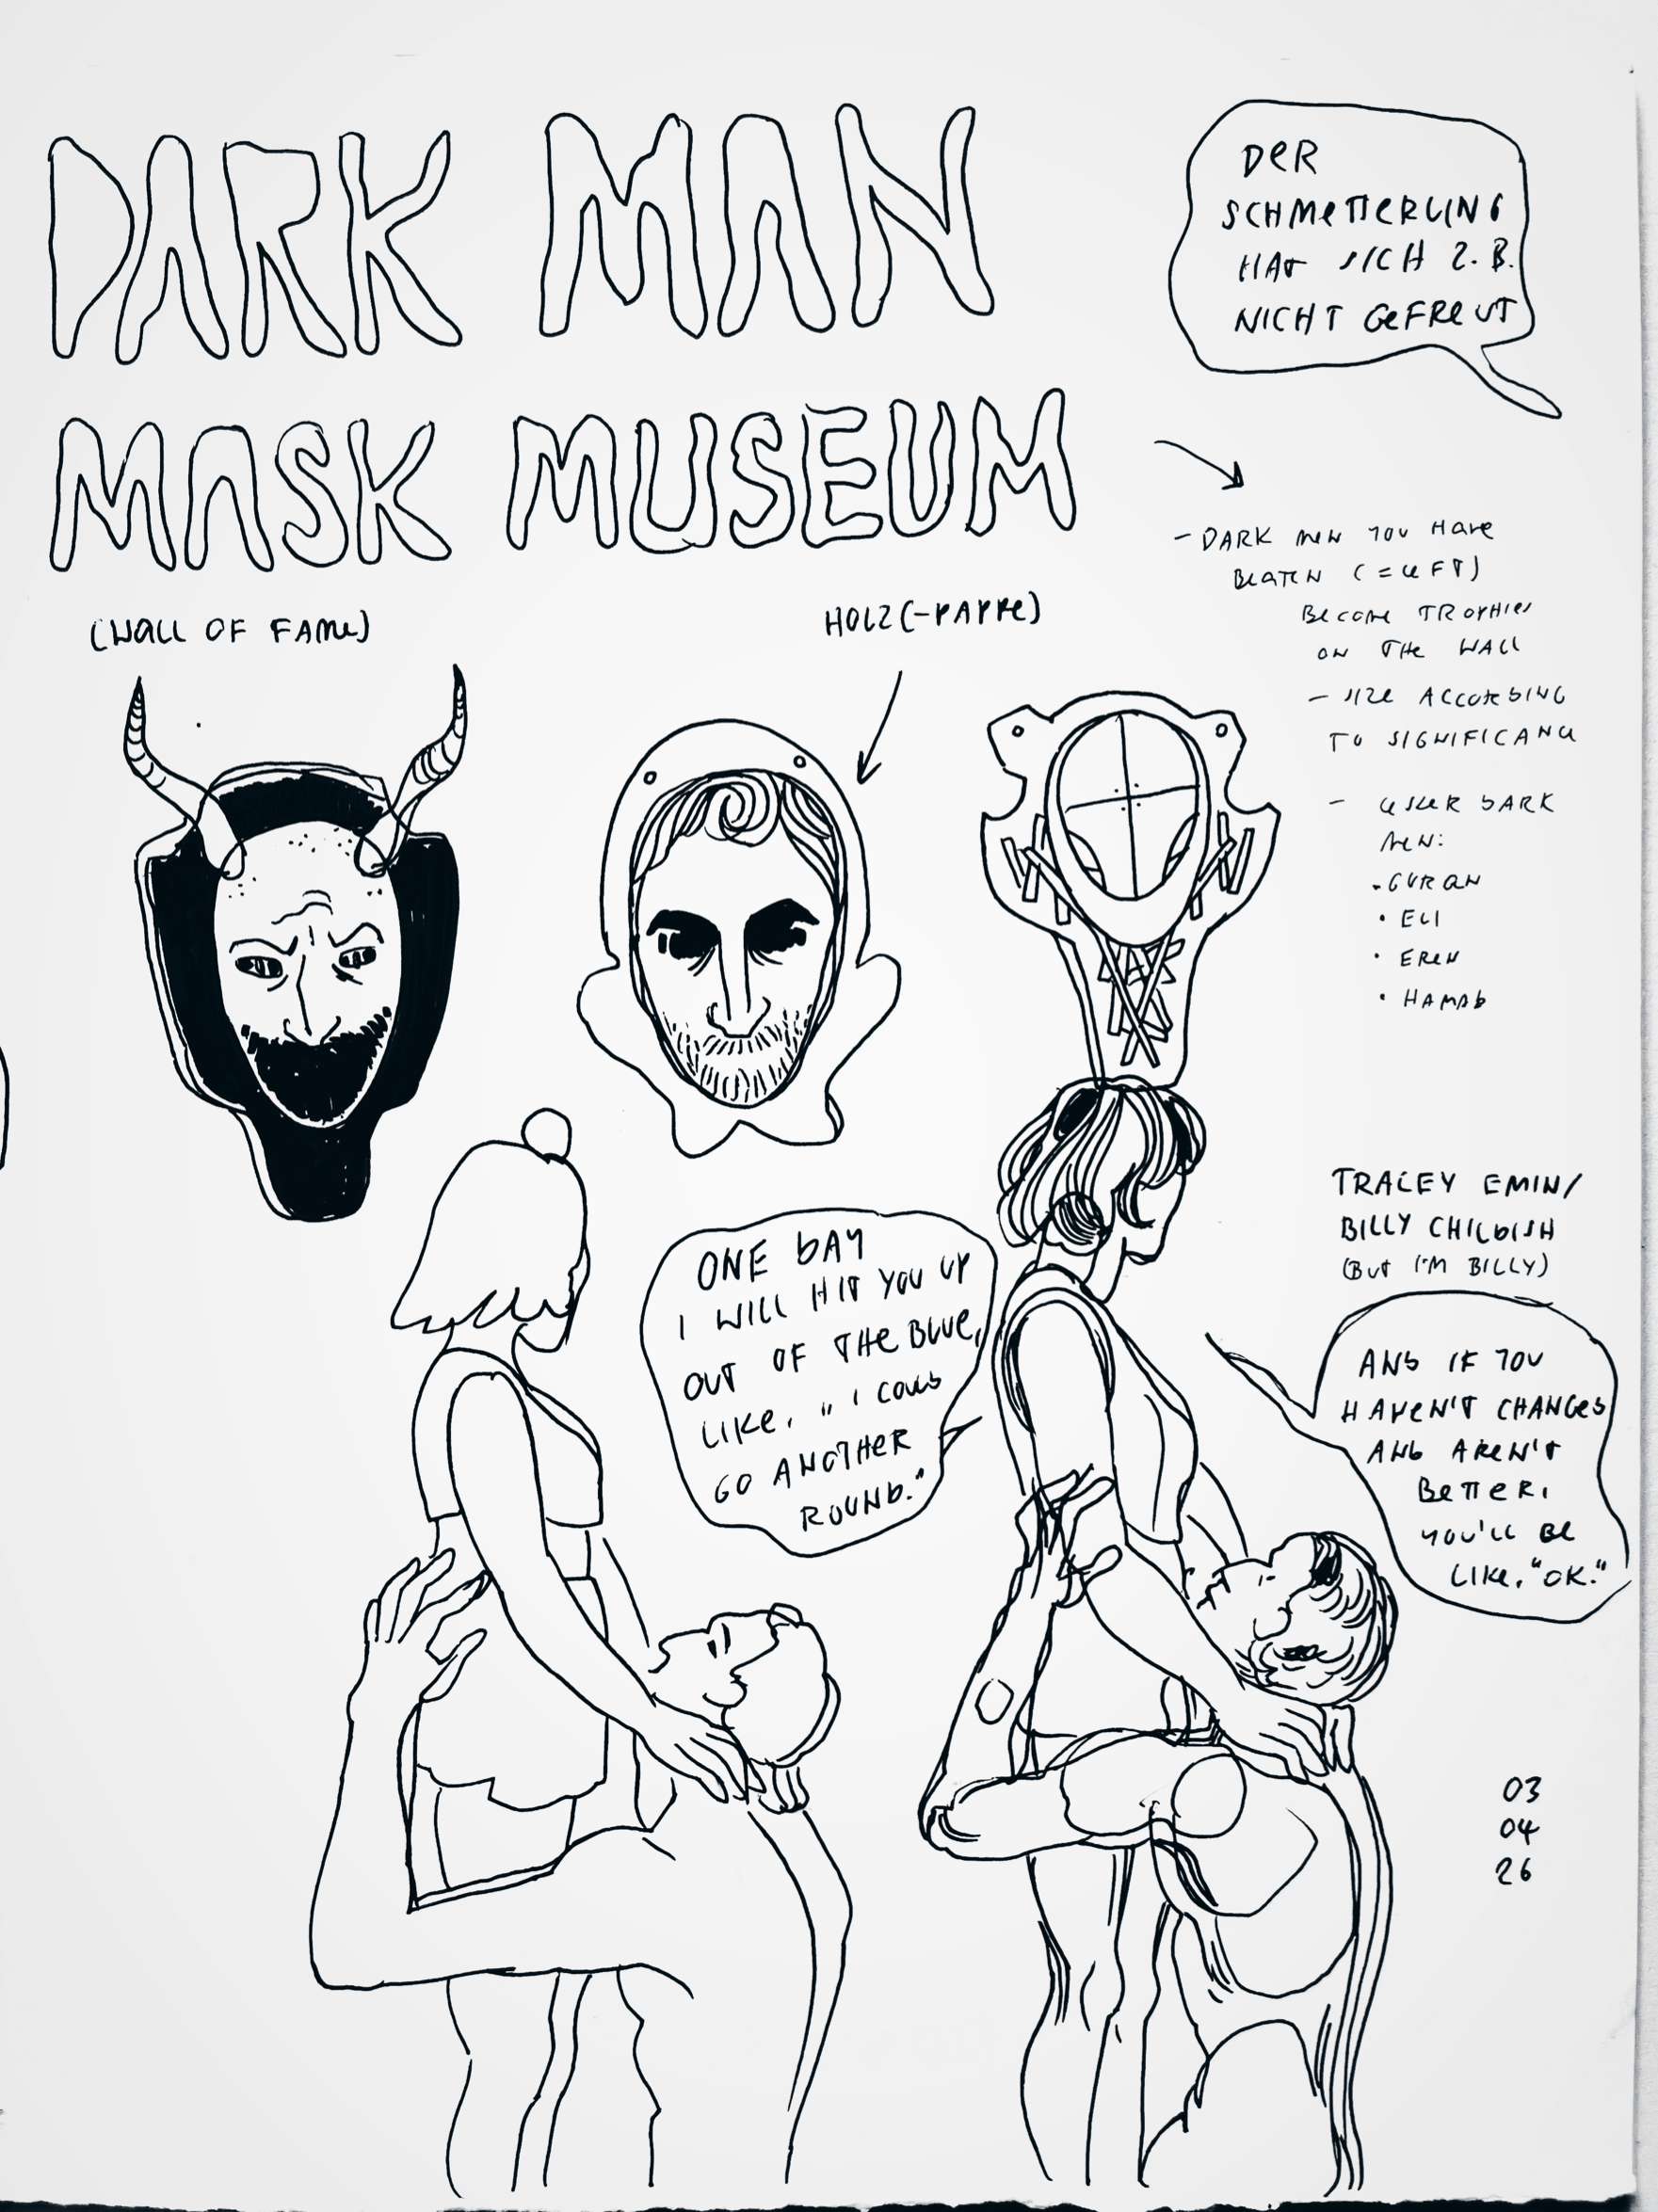 DARK MAN
MASK MUSEUM
(WALL OF FAME)
HOLZ(-PAPPE)
DER
SCHMETTERLING
HAT SICH Z.B.
NICHT GEFREUT
- DARK MEN YOU HAVE
BEATEN (= LEFT)
BECOME TROPHIES
ON THE WALL
- SIZE ACCORDING
TO SIGNIFICANCE
- LESSER DARK
MEN:
• ELI
• EREN
• HAMAD
ONE DAY
I WILL HIT YOU UP
OUT OF THE BLUE,
LIKE, "I COULD
GO ANOTHER
ROUND."
TRACEY EMIN/
BILLY CHILDISH
(BUT I'M BILLY)
AND IF YOU
HAVEN'T CHANGED
AND AREN'T
BETTER,
YOU'LL BE
LIKE, "OK."
03
04
26